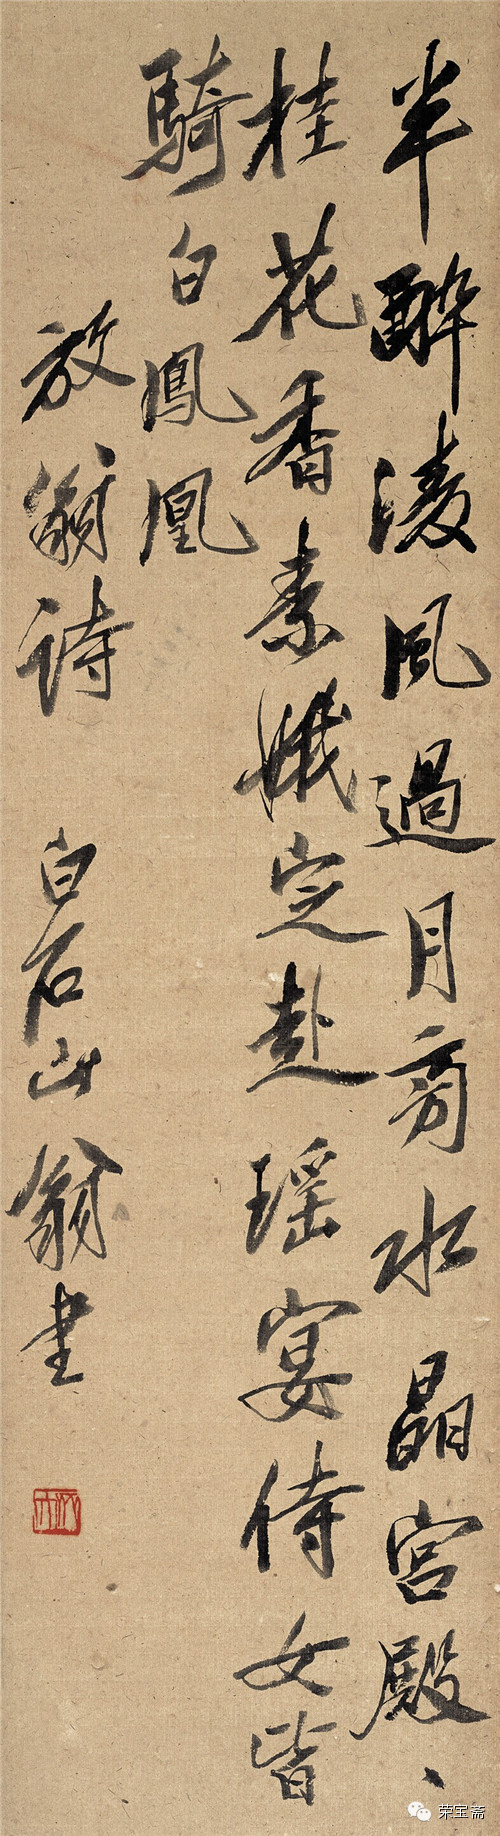 半醉凌風過月旁水晶宮殿、
桂花香素娥定赴瑶宴侍女皆
騎白鳳凰
放翁詩 白石山翁书
荣宝斋